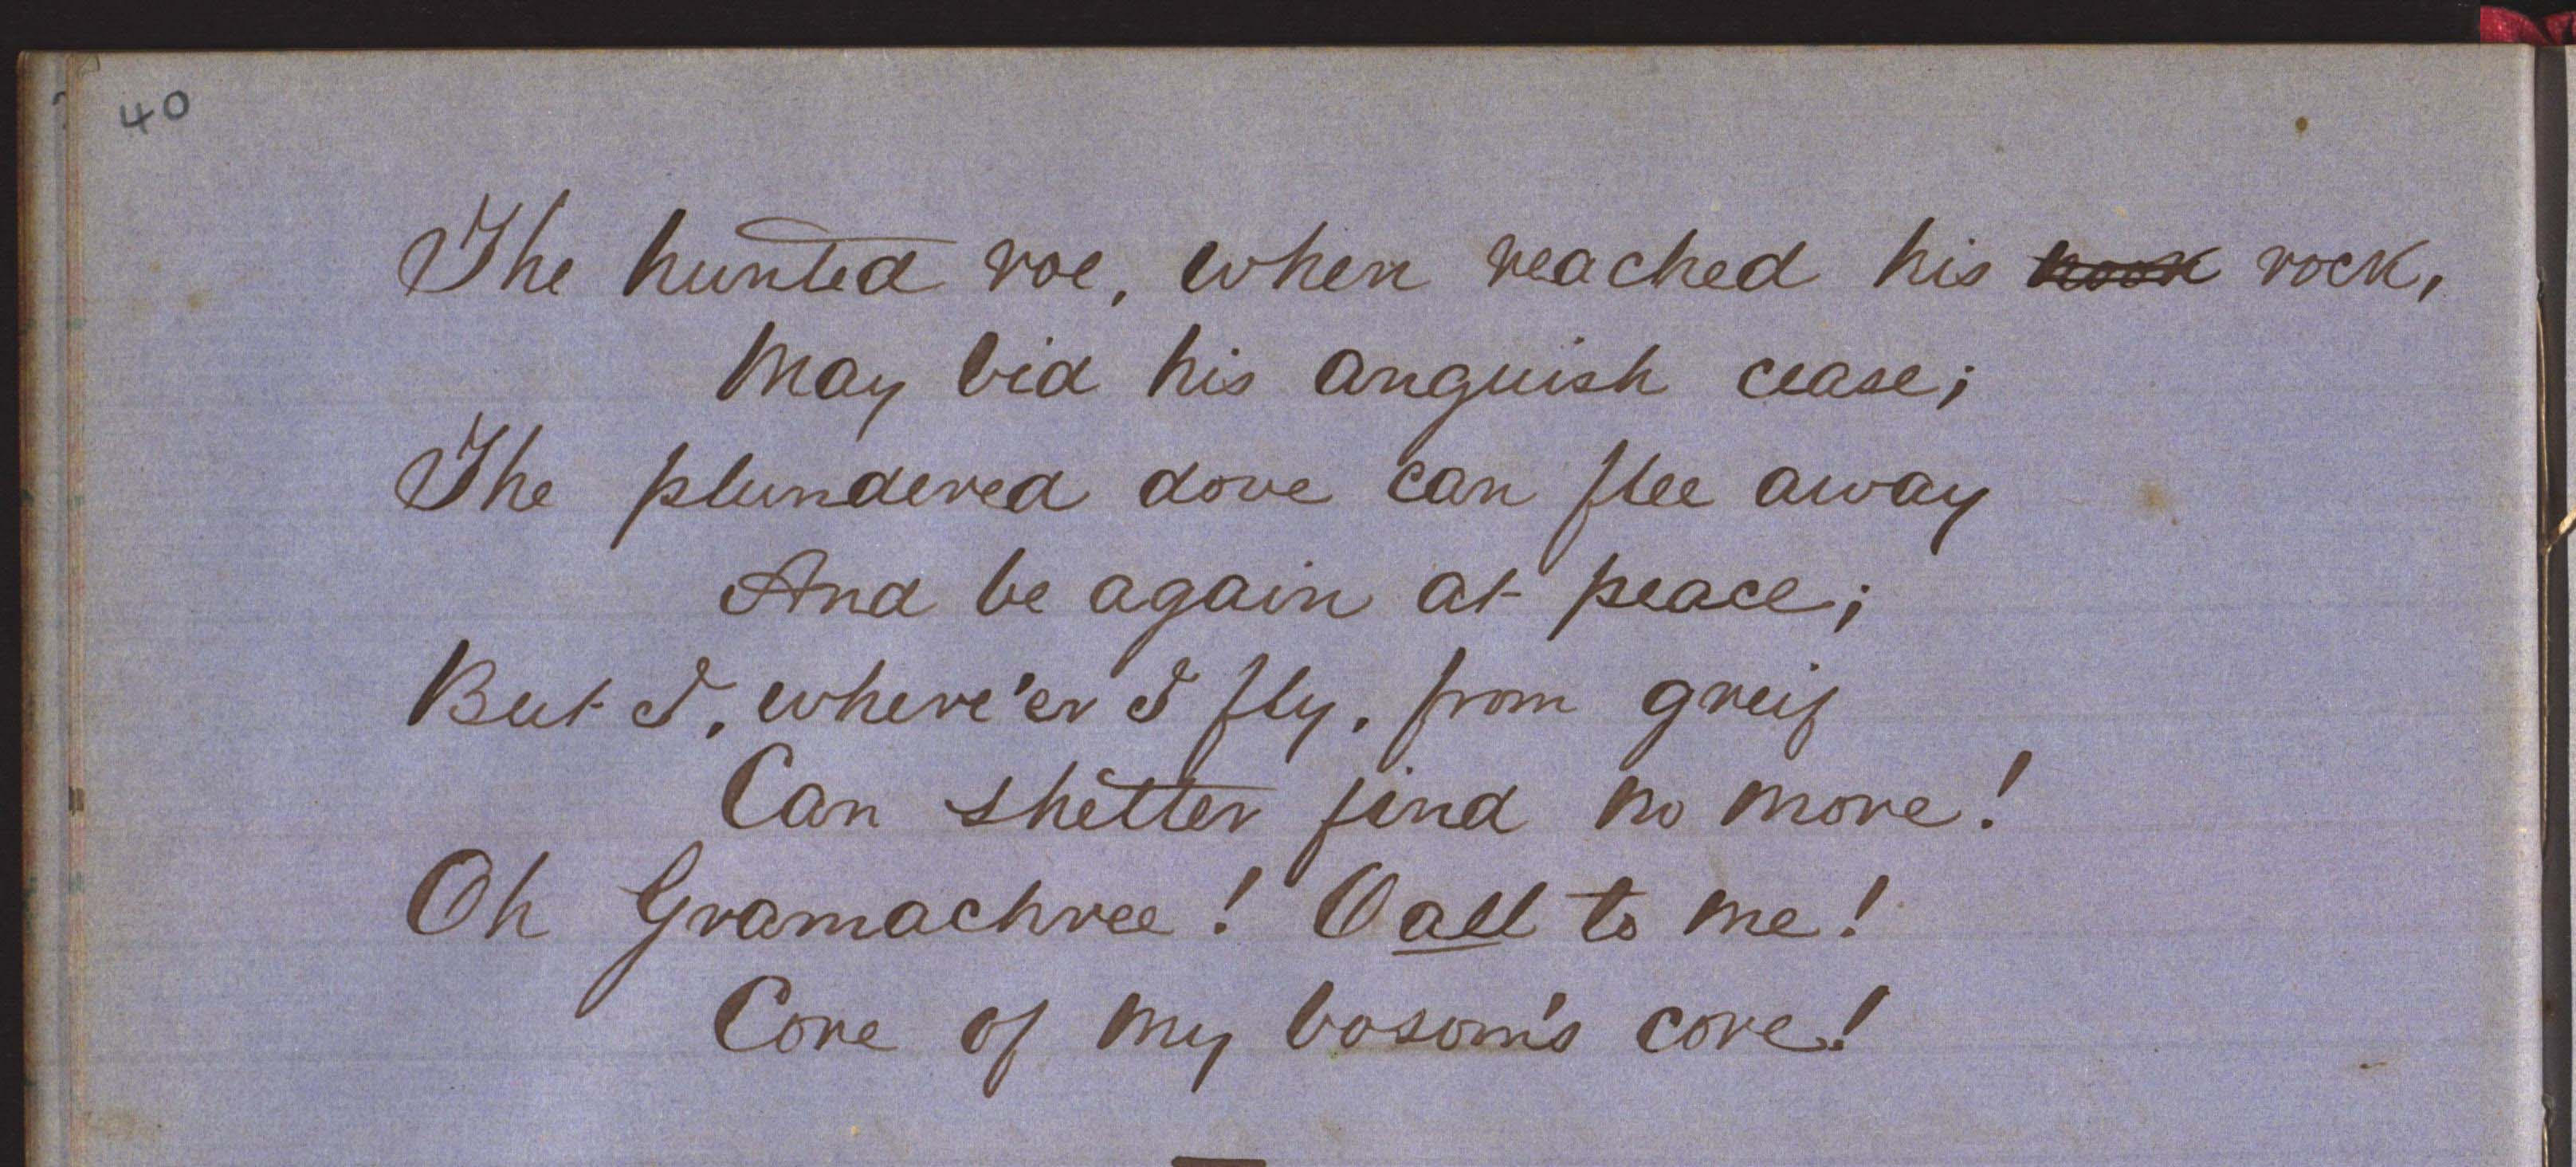 40
The hunted roe, when reached his nook rock,
May bid his anguish cease;
The plundered dove can flee away
And be again at peace;
But I, where'er I fly, from greif
Can shelter find no more!
Oh Gramachree! O all to me!
Core of my bosom's core!